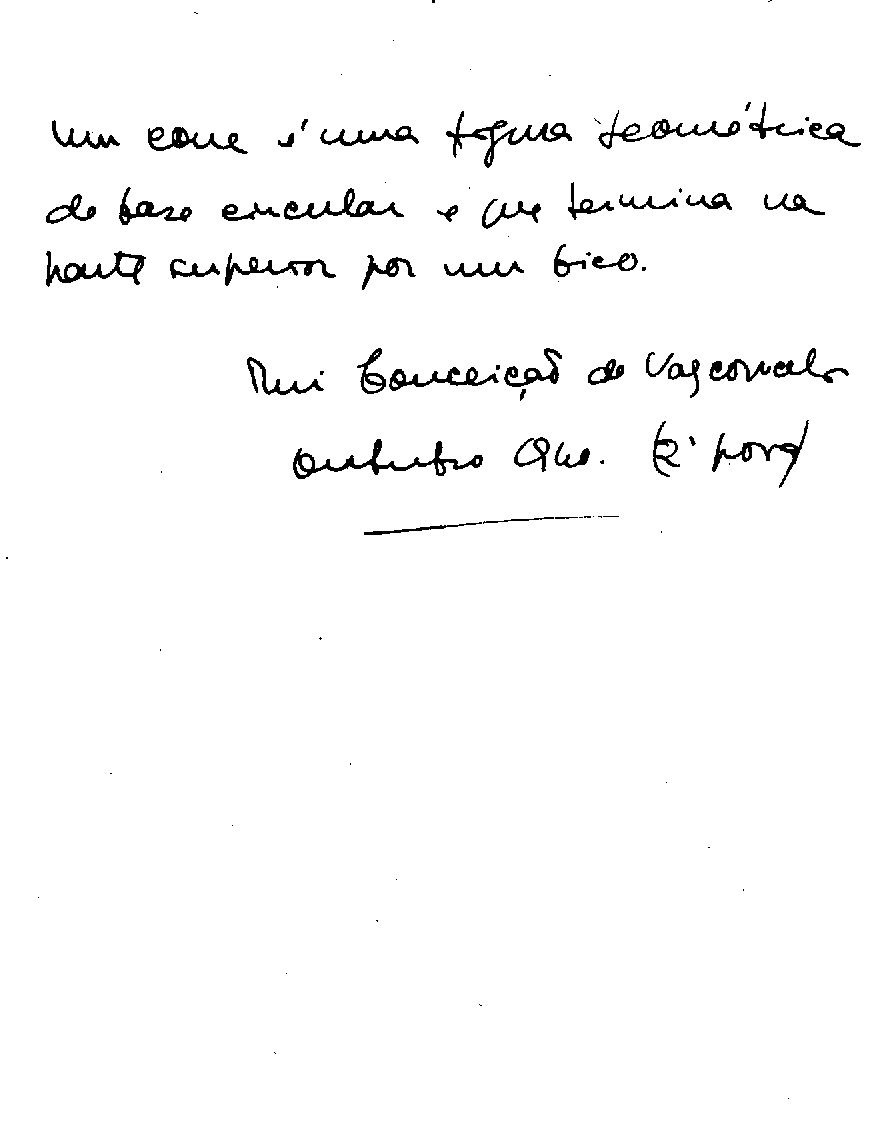 Um cone é uma figura geométrica
de base circular e que termina na
parte superior por um bico.
Rui Conceição de Vasconcelos
Outubro (2ª prova)